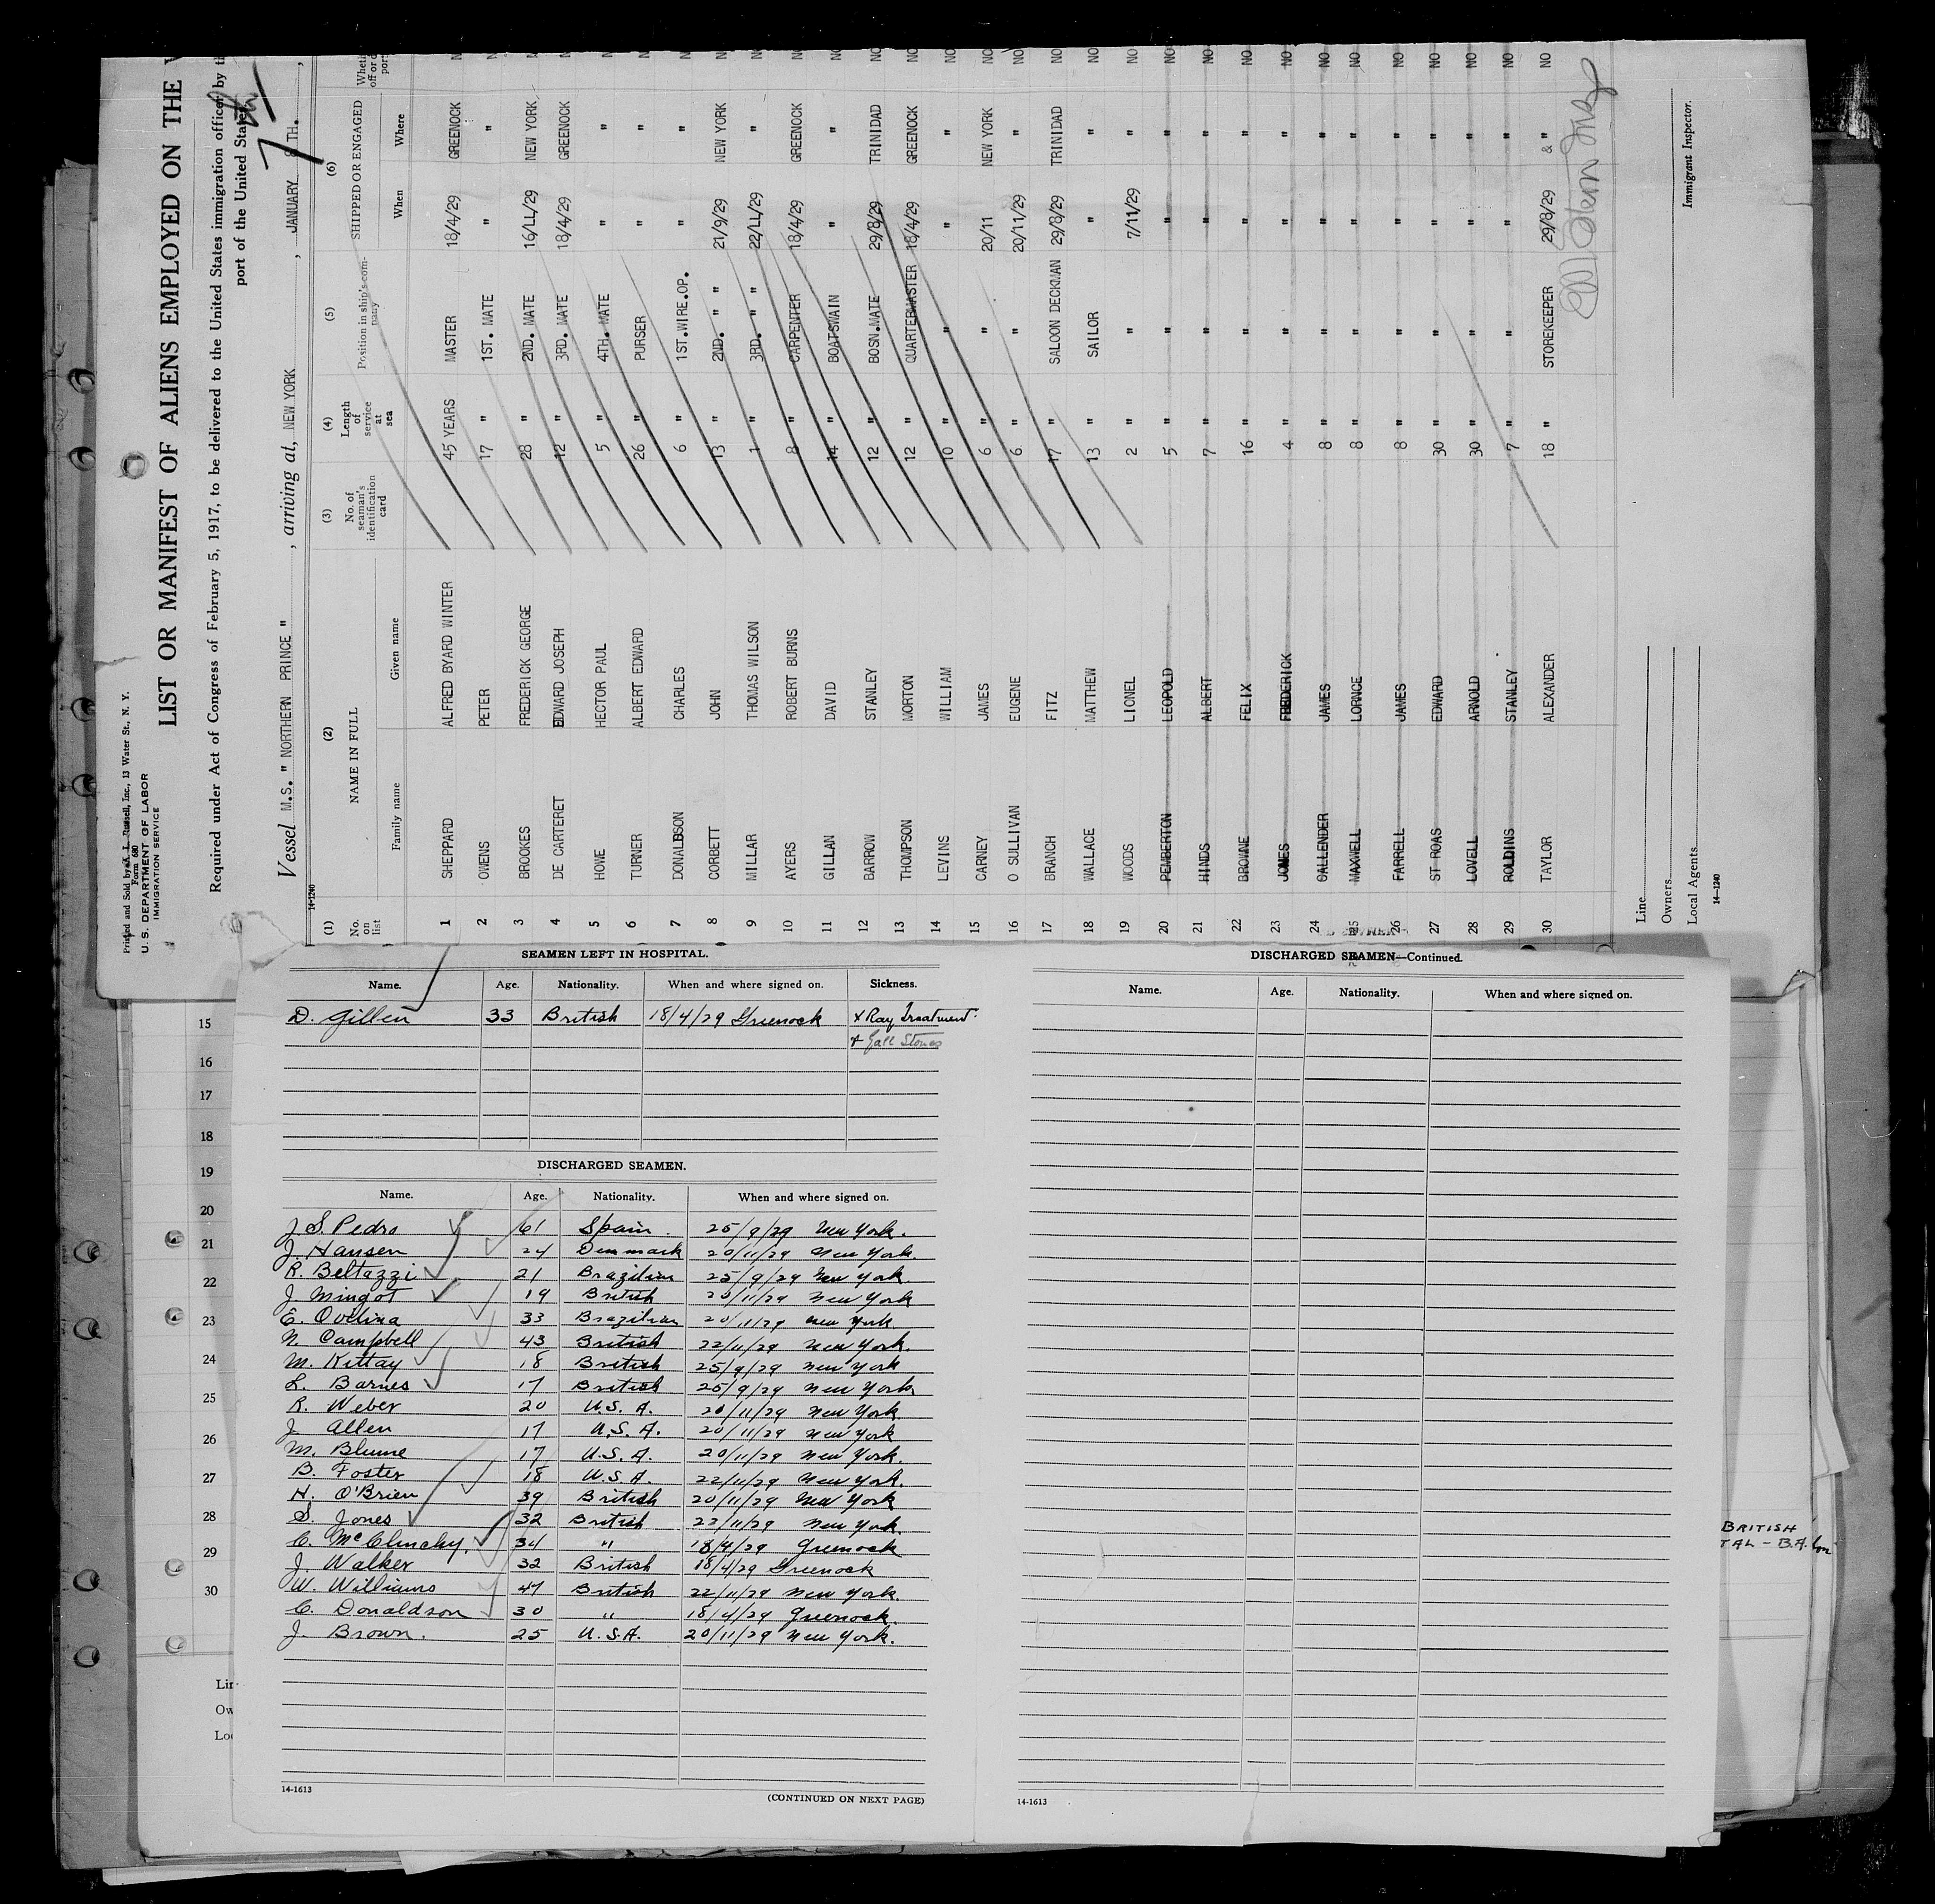 Printed and Sold by A. L. Russell, Inc., 13 Water St., N. Y.
Form 680
U. S. DEPARTMENT OF LABOR
IMMIGRATION SERVICE
LIST OR MANIFEST OF ALIENS EMPLOYED ON THE
Required under Act of Congress of February 5, 1917, to be delivered to the United States immigration officer by
port of the United States
7th
Vessel M.S. " NORTHERN PRINCE " , arriving at, NEW YORK , JANUARY 8TH. ,
14-1240
(1) (2) (3) (4) (5) (6)
No. on list NAME IN FULL No. of seaman's identification card Length of service at sea Position in ship's company SHIPPED OR ENGAGED
Family name Given name When Where
1 SHEPPARD ALFRED BYARD WINTER 45 YEARS MASTER 18/4/29 GREENOCK
2 OWENS PETER 17 " 1ST. MATE " "
3 BROOKES FREDERICK GEORGE 28 " 2ND. MATE 16/11/29 NEW YORK
4 DE CARTERET EDWARD JOSEPH 12 " 3RD. MATE 18/4/29 GREENOCK
5 HOWE HECTOR PAUL 5 " 4TH. MATE " "
6 TURNER ALBERT EDWARD 26 " PURSER " "
7 DONALDSON CHARLES 6 " 1ST.WIRE.OP. " "
8 CORBETT JOHN 13 " 2ND. " " 21/9/29 NEW YORK NO
9 MILLAR THOMAS WILSON 1 " 3RD. " " 22/11/29 " NO
10 AYERS ROBERT BURNS 8 " CARPENTER 18/4/29 GREENOCK NO
11 GILLAN DAVID 14 " BOATSWAIN " " NO
12 BARROW STANLEY 12 " BOSN.MATE 29/8/29 TRINIDAD NO
13 THOMPSON MORTON 12 " QUARTERMASTER 18/4/29 GREENOCK NO
14 LEVINS WILLIAM 10 " " " " NO
15 CARNEY JAMES 6 " " 20/11 NEW YORK NO
16 O SULLIVAN EUGENE 6 " " 20/11/29 " NO
17 BRANCH FITZ 17 " SALOON DECKMAN 29/8/29 TRINIDAD NO
18 WALLACE MATTHEW 13 " SAILOR " " NO
19 WOODS LIONEL 2 " " 7/11/29 " NO
20 PEMBERTON LEOPOLD 5 " " " " NO
21 HINDS ALBERT 7 " " " " NO
22 BROWNE FELIX 16 " " " " NO
23 JONES FREDERICK 4 " " " " NO
24 CALLENDER JAMES 8 " " " " NO
25 MAXWELL LORNCE 8 " " " " NO
26 FARRELL JAMES 8 " " " " NO
27 ST ROAS EDWARD 30 " " " " NO
28 LOVELL ARNOLD 30 " " " " NO
29 ROLDINS STANLEY 7 " " " " NO
30 TAYLOR ALEXANDER 18 " STOREKEEPER 29/8/29 & " NO
Line
Owners
Local Agents
14-1240
Immigrant Inspector.
SEAMEN LEFT IN HOSPITAL.
Name. Age. Nationality. When and where signed on. Sickness.
D. Gillen 33 British 18/4/29 Greenock X Ray Treatment.
+ Gall Stones
DISCHARGED SEAMEN.
Name. Age. Nationality. When and where signed on.
J. S. Pedro 61 Spain. 25/9/29 New York.
J. Hansen 24 Denmark 20/11/29 New York.
R. Beltazzi 21 Brazilian 25/9/29 New York
J. Mingot 19 British 20/11/29 New York
E. Ovelina 33 Brazilian 20/11/29 New York
N. Campbell 43 British 22/11/29 New York.
M. Kittay 18 British 25/9/29 New York
L. Barnes 17 British 25/9/29 New York
R. Weber 20 U.S.A. 20/11/29 New York.
J. Allen 17 U.S.A. 20/11/29 New York
M. Blume 17 U.S.A. 20/11/29 New York.
B. Foster 18 U.S.A. 22/11/29 New York.
H. O'Brien 39 British 20/11/29 New York
S. Jones 32 British 22/11/29 New York.
C. McClinchy. 34 " 18/4/29 Greenock
J. Walker 32 British 18/4/29 Greenock
W. Williams 47 British 22/11/29 New York.
C. Donaldson 30 " 18/4/29 Greenock.
J. Brown. 25 U.S.A. 20/11/29 New York.
14-1613
(CONTINUED ON NEXT PAGE)
DISCHARGED SEAMEN—Continued.
Name. Age. Nationality. When and where signed on.
14-1613
15
16
17
18
19
20
21
22
23
24
25
26
27
28
29
30
BRITISH
TAL - B.A.